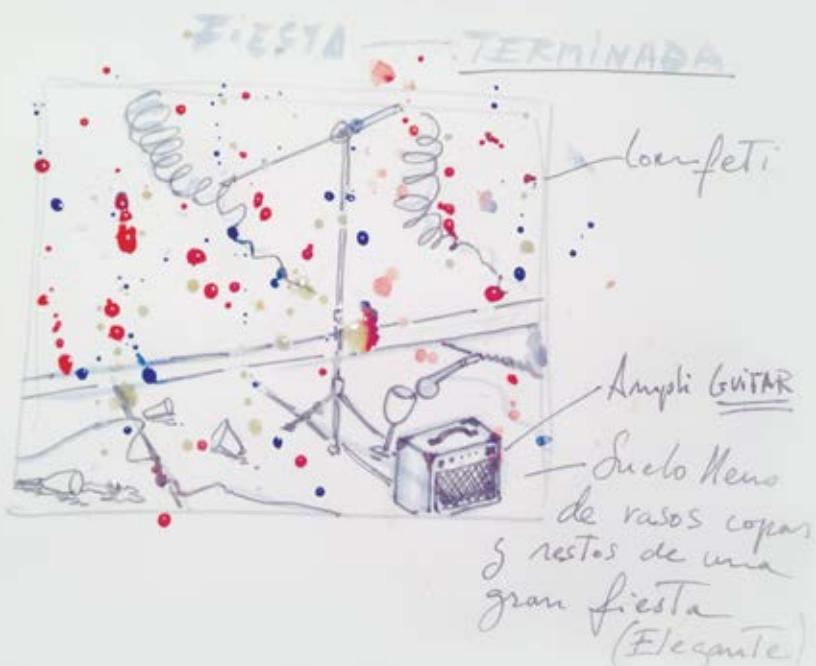 FiESTA — TERMiNADA
Confeti
Ampli GUiTAR
Suelo lleno
de vasos copas
y restos de una
gran fiesta
(Elegante)